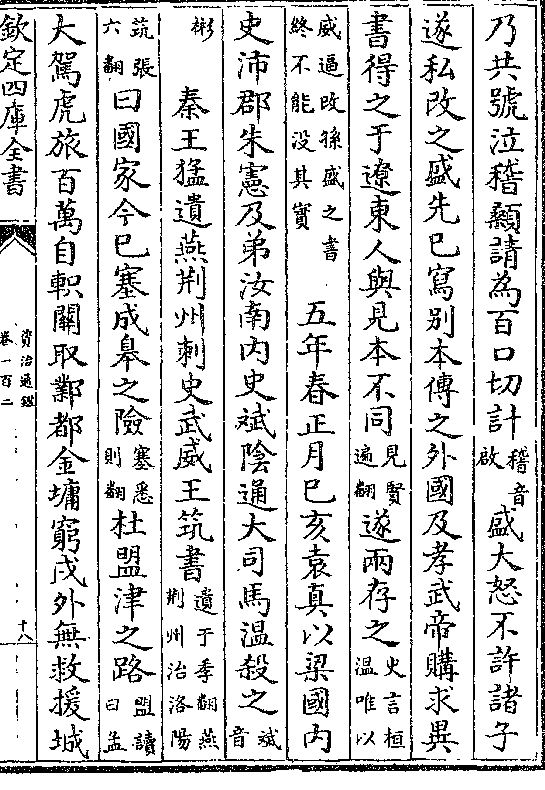 乃共號泣稽顙請為百口切計稽音啟盛大怒不許諸子
遂私改之盛先已寫別本傳之外國及孝武帝購求異
書得之于遼東人與見本不同見賢遍翻遂兩存之史言桓温唯以
威逼改孫盛之書終不能没其實 五年春正月己亥袁真以梁國内
史沛郡朱憲及弟汝南内史斌陰通大司馬温殺之斌音
彬 秦王猛遺燕荆州刺史武威王筑書遺于季翻燕荆州治洛陽
筑張六翻曰國家今已塞成皋之險塞悉則翻杜盟津之路盟讀曰孟
大駕虎旅百萬自軹關取鄴都金墉窮戍外無救援城
欽定四庫全書
資治通鑑
卷一百二
十八